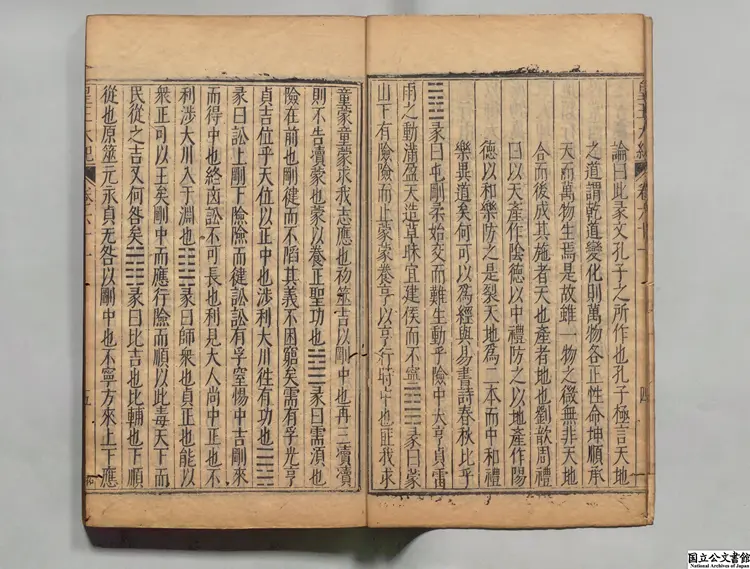 論曰此彖文孔子之所作也孔子極言天地
之道謂乾道變化則萬物各正性命坤順承
天而萬物生焉是故雖一物之微無非天地
合而後成其施者天也產者地也劉歆周禮
曰以天產作陰德以中禮防之以地產作陽
德以和樂防之是裂天地爲二本而中和禮
樂異道矣何可以爲經與易書詩春秋比乎
䷂彖曰屯剛柔始交而難生動乎險中大亨貞雷
雨之動滿盈天造草昧宜建侯而不寧䷃彖曰蒙
山下有險險而止蒙蒙養亨以亨行時中也匪我求
童蒙童蒙求我志應也初筮吉以剛中也再三瀆瀆
則不告瀆蒙也蒙以養正聖功也䷄彖曰需須也
險在前也剛健而不陷其義不困窮矣需有孚光亨
貞吉位乎天位以正中也涉利大川往有功也䷅
彖曰訟上剛下險險而健訟訟有孚窒惕中吉剛來
而得中也終凶訟不可長也利見大人尚中正也不
利涉大川入于淵也䷆彖曰師衆也貞正也能以
衆正可以王矣剛中而應行險而順以此毒天下而
民從之吉又何咎矣䷇彖曰比吉也比輔也下順
從也原筮元永貞无咎以剛中也不寧方來上下應
皇王大紀 卷六十 五
国立公文書館
National Archives of Japan